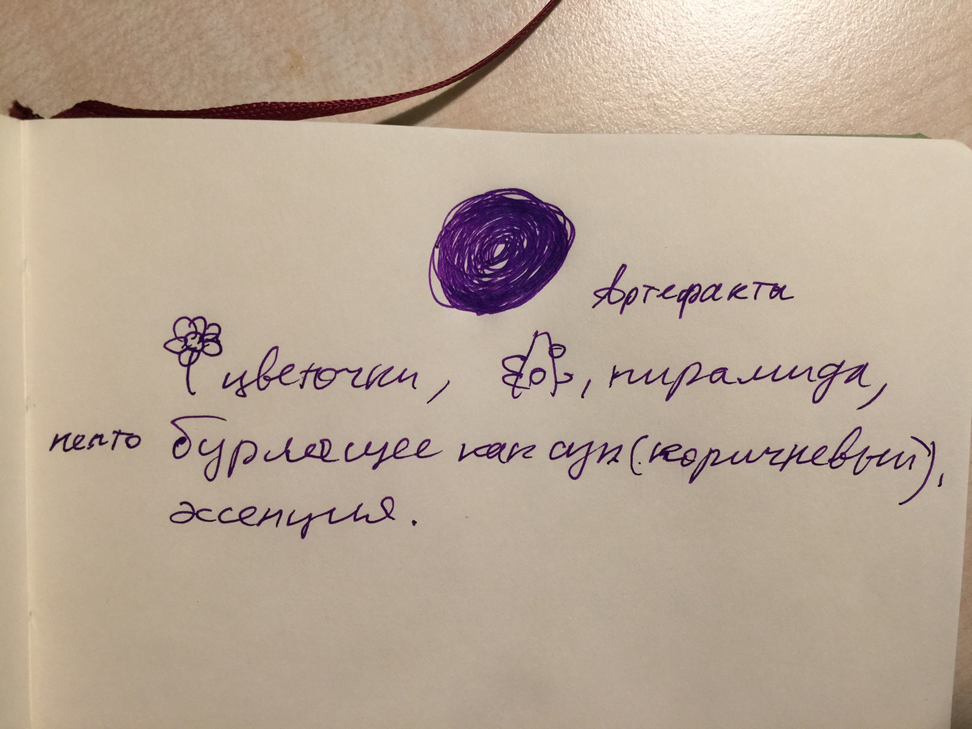 Артефакты
цветочки, , пирамида,
нечто бурлящее как суп (коричневый),
эссенция.